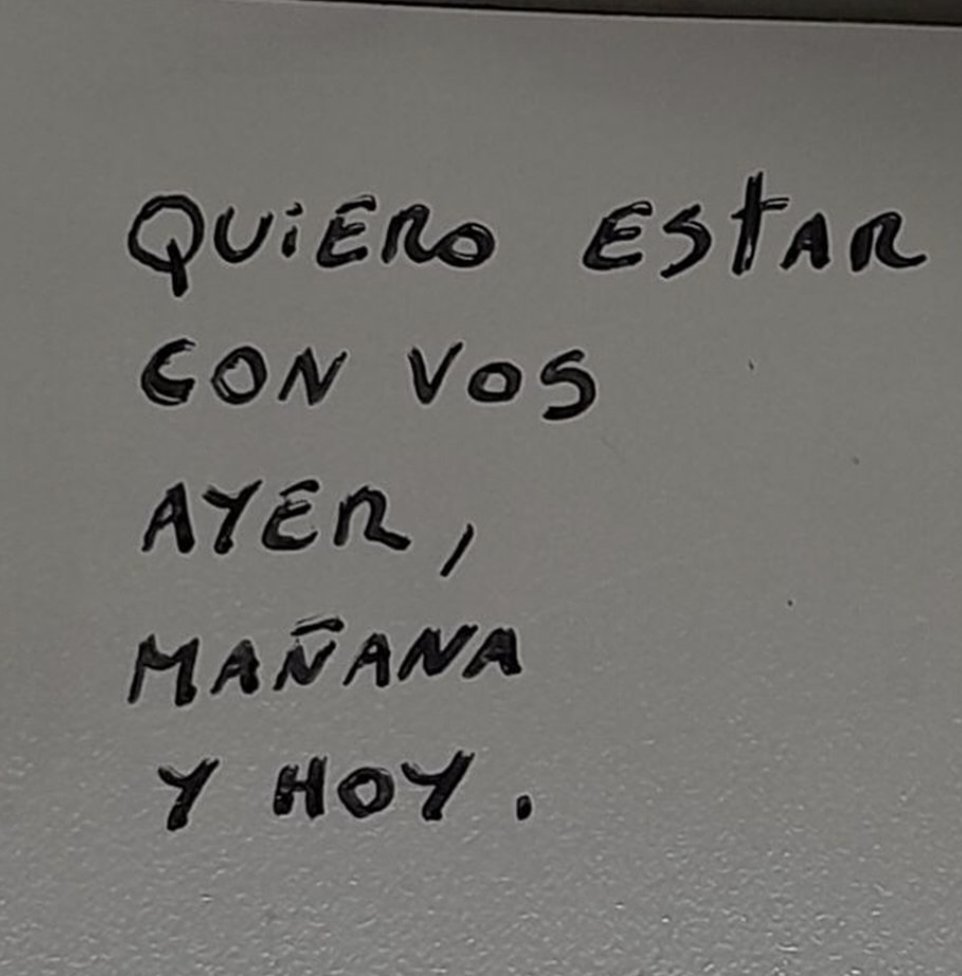 QUIERO ESTAR
CON VOS
AYER,
MAÑANA
Y HOY.